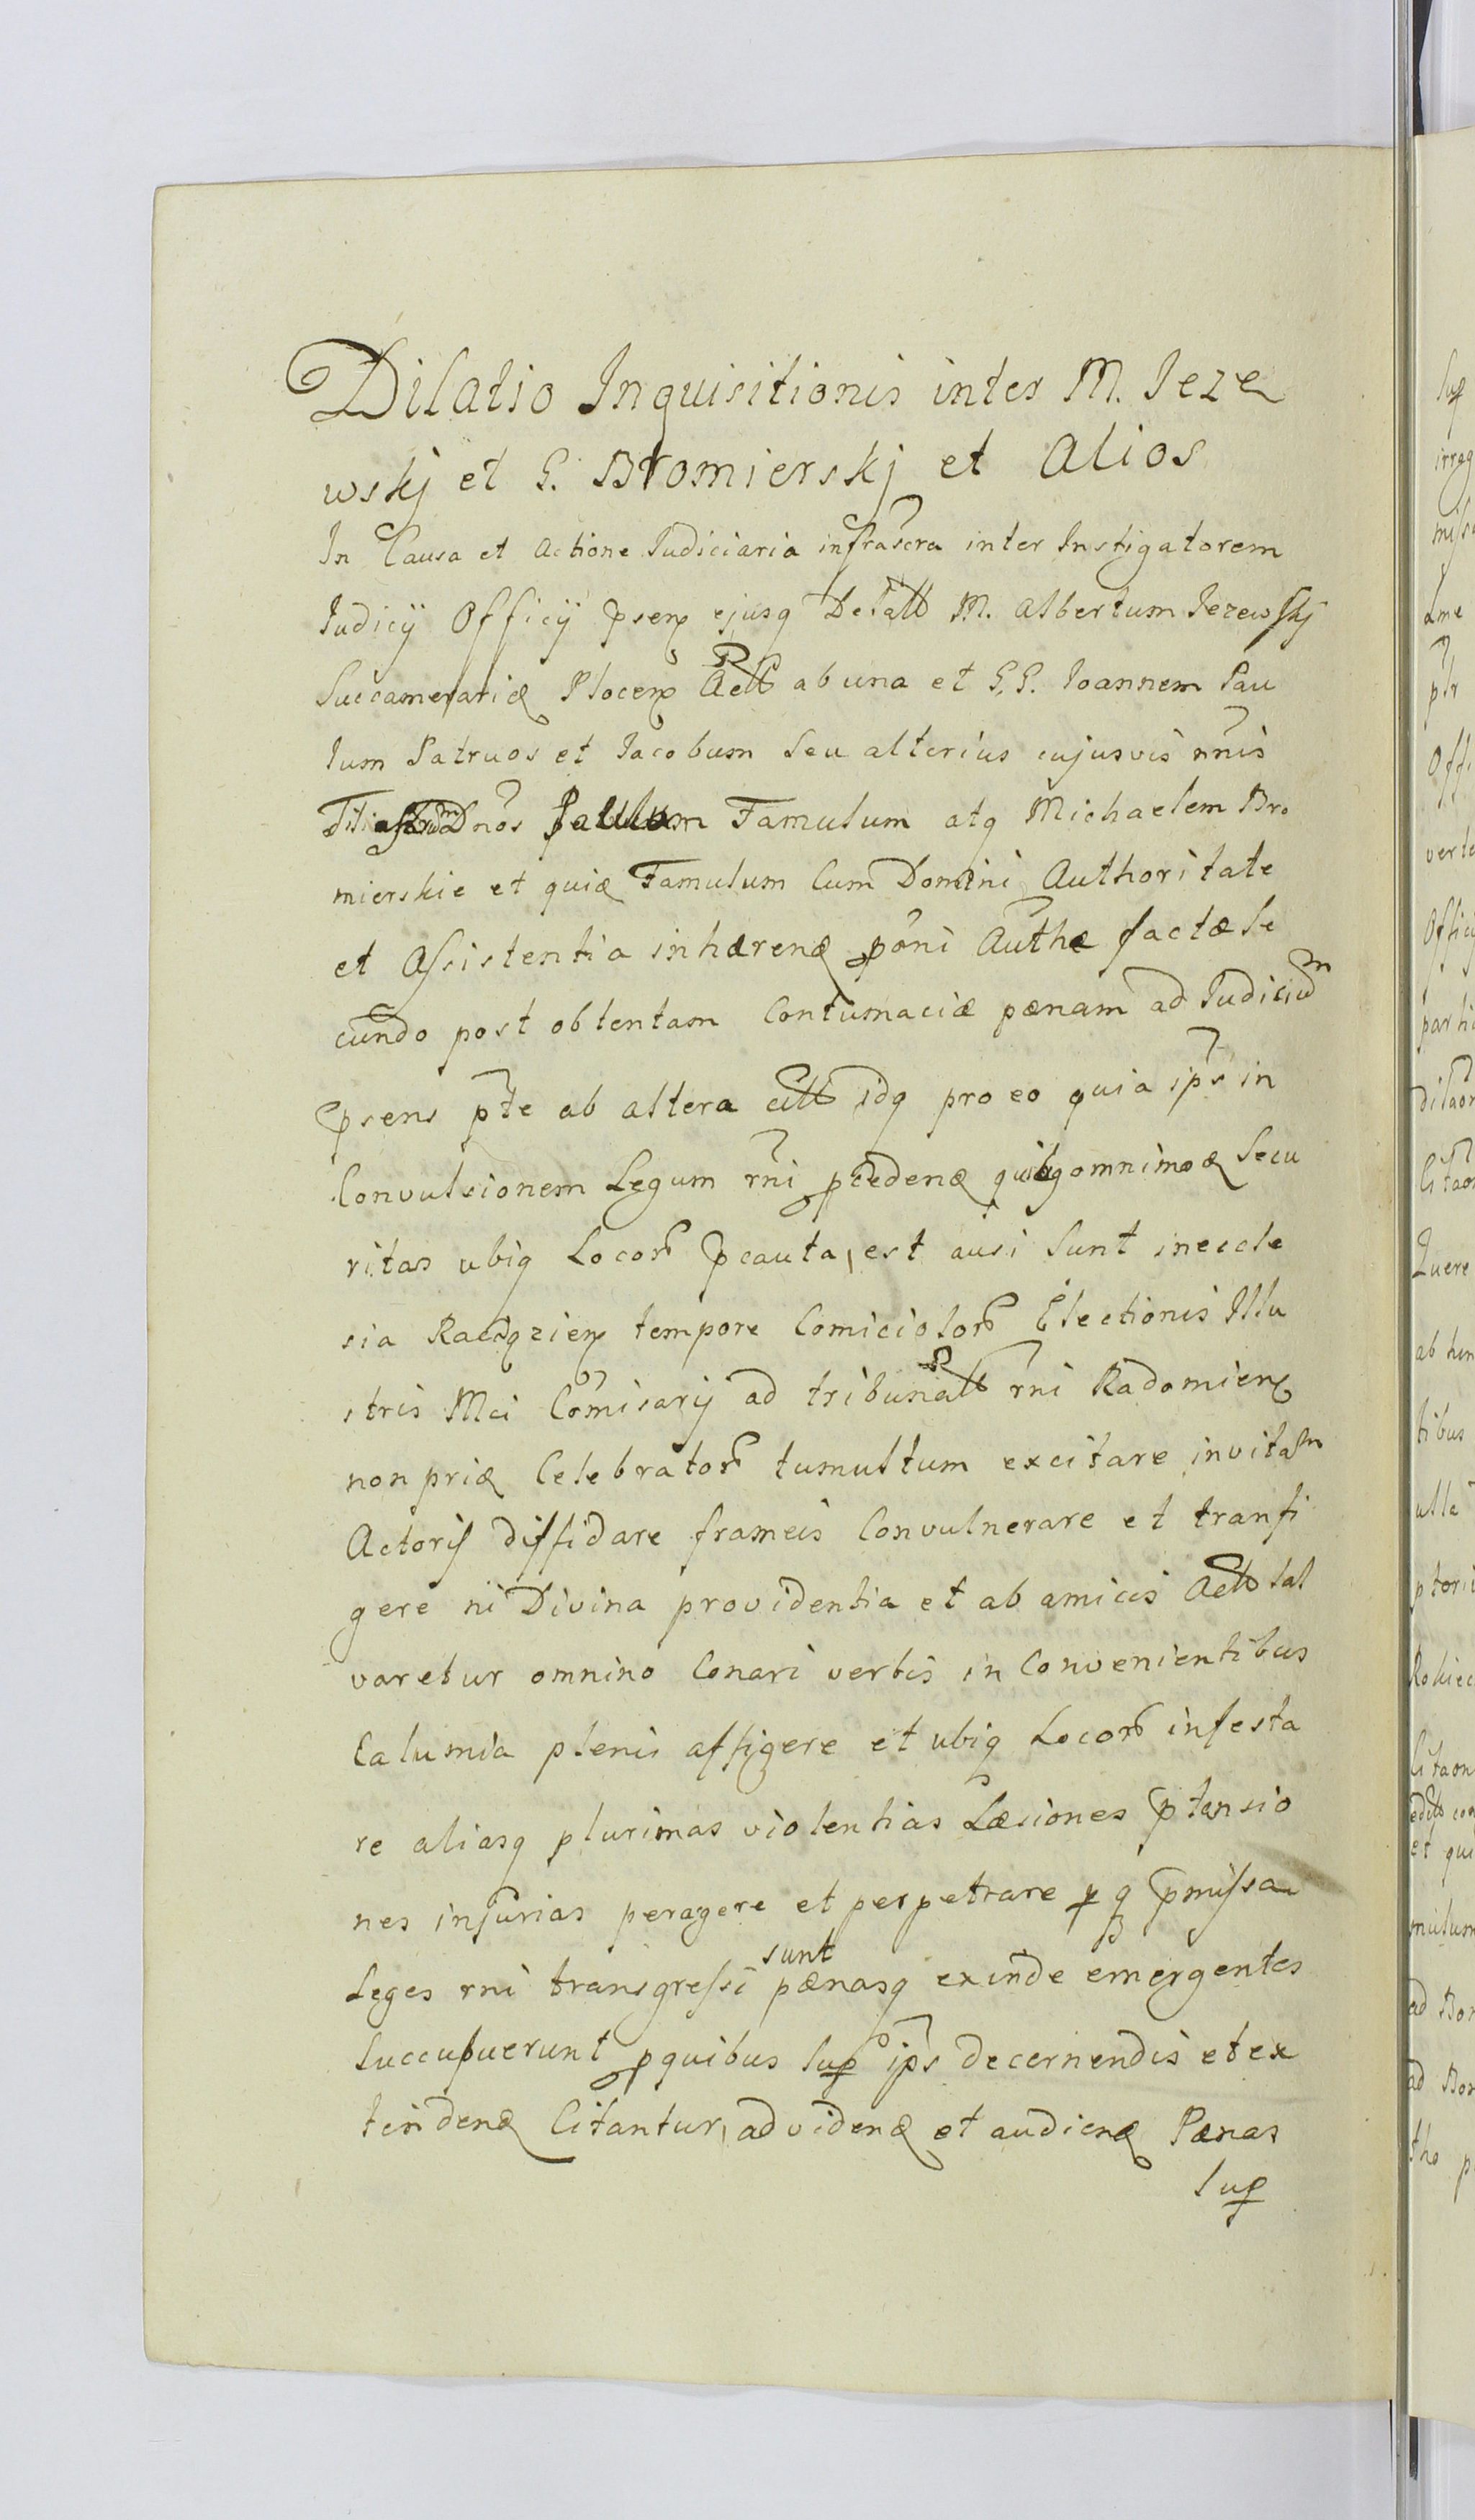 Dilatio Inquisitionis inter M. Jeze
wskj et G. Bromierskj et Alios
In Causa et Actione Judiciaria infrascra inter Instigatorem
Judicÿ Officÿ psen ejusq Delatt M. Albertum Jezewskj
Succamerariū Plocen Actt ab una et G.G. Joannem Pau
lum Patruos et Jacobum seu alterius cujusvis nnis
Dnos Paulum Famulum atq Michaelem Bro
mierskie et Famulum Cum Domini Authoritate
et Assistentia inhæren poni Authæ factæ se
cundo post obtentam Contumaciæ pænam ad Judiciū
psens pte ab altera citt idq pro eo quia ips in
Convulsionem Legum rni pceden quibq omnimod secu
ritas ubiq Locor pcauta est ausi sunt in eccle
sia Raciązien tempore Comiciolor Electionis Illu
stris Mci Comisarÿ ad tribunatt rni Radomien
non prid Celebrator tumultum excitare in vitam
Actoris diffidare frameis Convulnerare et transfi
gere ni Divina providentia et ab amicis Actt sal
varetur omnino Conari verbis in Convenientibus
Calumia plenis affigere et ubiq Locor infesta
re aliasq plurimas violentias Læsiones ptensio
nes injurias peragere et perpetrare p q pmissa
Leges rni transgressi sunt pænasq exinde emergentes
succubuerunt pquibus sup ips decernendis et ex
tenden Citantur, ad viden et audien Pænas
sup